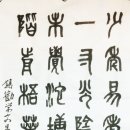 少年易老
一寸光陰
未覺池塘
階前梧葉